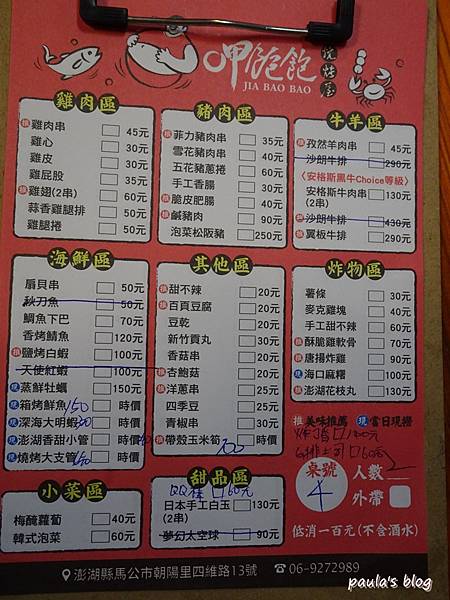 呷飽飽
燒烤屋
JIA BAO BAO
雞肉區
推 雞肉串 45元
雞心 30元
雞皮 30元
雞屁股 35元
推 雞翅(2串) 60元
蒜香雞腿排 50元
雞腿捲 50元
豬肉區
推 菲力豬肉串 35元
雪花豬肉串 40元
五花豬蔥捲 60元
手工香腸 30元
推 脆皮肥腸 40元
推 鹹豬肉 90元
泡菜松阪豬 250元
牛羊區
推 孜然羊肉串 45元
沙朗牛排 290元
〈安格斯黑牛Choice等級〉
安格斯牛肉串 130元
(2串)
沙朗牛排 430元
推 翼板牛排 290元
海鮮區
扇貝串 50元
秋刀魚 50元
鯛魚下巴 70元
香烤鯖魚 120元
推 鹽烤白蝦 100元
天使紅蝦 100元
現 蒸鮮牡蠣 150元
現 箱烤鮮魚 150 時價
現 深海大明蝦 時價
現 澎湖香甜小管 時價
現 燒烤大支管 時價
其他區
推 甜不辣 20元
推 百頁豆腐 20元
豆乾 20元
新竹貢丸 30元
香菇串 30元
推 杏鮑菇 20元
推 洋蔥串 20元
四季豆 20元
青椒串 30元
推 帶殼玉米筍 時價
炸物區
薯條 30元
麥克雞塊 40元
手工甜不辣 60元
推 酥脆雞軟骨 70元
推 唐揚炸雞 90元
現 海口麻糬 100元
推 澎湖花枝丸 130元
推 美味推薦 現 當日現撈
桌號 4
人數 2
外帶
低消一百元(不含酒水)
小菜區
梅醃蘿蔔 40元
韓式泡菜 60元
甜品區
日本手工白玉 130元
(2串)
夢幻太空球 90元
澎湖縣馬公市朝陽里四維路13號 06-9272989
paula's blog